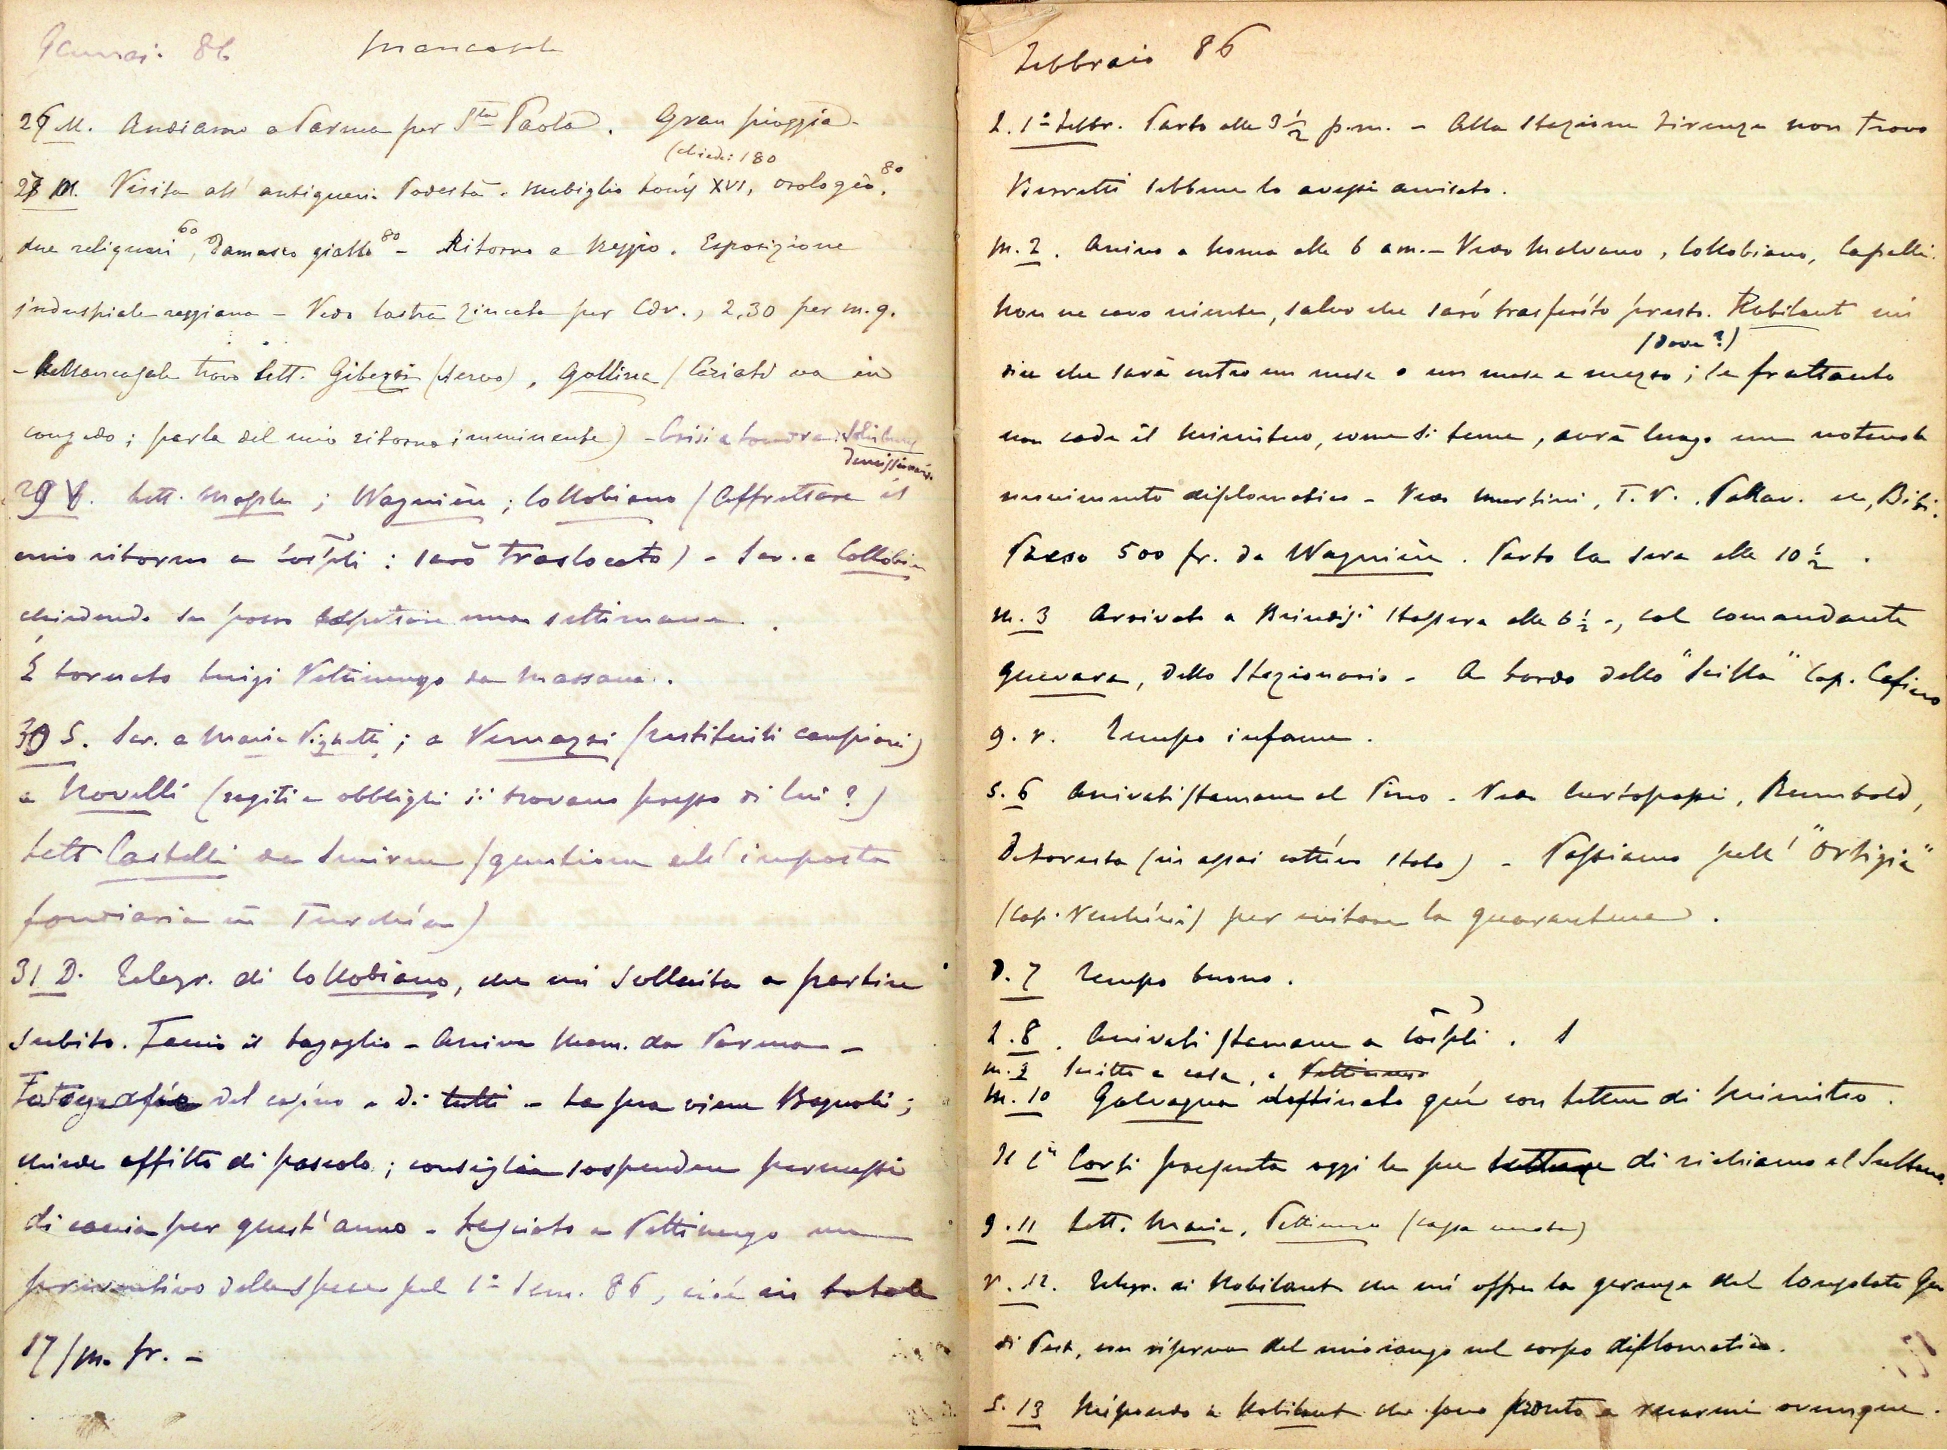 Gennaj. 86 Mancasale
27 M. Andiamo a Parma per Sta Paola. Gran pioggia.
(chiede: 180
28 M. Visita all' antiquari. Podestà. Mobiglio Louis XVI, orologio, 80
due reliquari 60, Damasco giallo 80 - Ritorno a Reggio. Esposizione
industriale reggiana - Vedo lastra zincata per Cdv., 2,30 per m.q.
- A Mancasale trovo lett. Giberti (servo), Gallina (Ceriati va in
congedo; parla del mio ritorno imminente) - Crisi a Londra: Salisbury
dimissionario.
29 V. Lett. ; Wagnière; Collobiano (Affrettare il
mio ritorno a Cospli: sarò traslocato) - Scr. a Collobian
chiedendo se posso aspettare una settimana.
È tornato Luigi Pettinengo da Massaua.
30 S. Scr. a Maria Pignatti; a Vernazzi (restituiti campioni)
a Novelli (registi e obblighi si trovano presso di lui?)
Lett Castelli da Smirne (questione dell' imposta
fondiaria in Turchia)
31 D. Telegr. di Collobiano, che mi sollecita a partire
subito. Faccio il bagaglio - Arriva Mam. da Parma -
Fotografie del casino e di tutti - La sera viene Bagnoli;
chiede affitto di pascolo; consiglia sospendere permessi
di caccia per quest'anno - Lasciato a Pettinengo un
preventivo delle spese pel 1° Sem. 86, cioè in totale
17/m. fr. -
Febbraio 86
L. 1° Febbr. Parto alle 3 1/2 p.m. - Alla Stazione Firenze non trovo
sebbene lo avessi avvisato.
M. 2. Arrivo a Roma alle 6 am. - Vedo Malvano, Collobiano, Capelli.
Non ne cavo niente, salvo che sarò trasferito presto. Robilant mi
(dove?)
dice che sarà entro un mese o un mese e mezzo; se frattanto
non cade il Ministero, come si teme, avrà luogo un notevole
movimento diplomatico - Vedo Martini, T. V., Pallav. etc, Bibi.
Preso 500 fr. da Wagnière. Parto la sera alle 10 1/2.
M. 3 Arrivato a Brindisi stasera alle 6 1/2 -, col comandante
Guevara, dello Stazionario - A bordo dello "Scilla" Cap. Cafiero
G. V. Tempo infame.
S. 6 Arrivati stamane al Pireo - Vedo Curtopassi, Rumbold,
(in assai cattivo stato) - Passiamo sull' "Ortigia"
(cap. Vecchini) per evitare la quarantena.
D. 7 Tempo buono.
L. 8. Arrivati stamane a Cospli. 1
M. 9 Scritto a casa, a Pettinengo
M. 10 Galvagna destinato quì con lettere di Ministro.
Il Cte Corti presenta oggi le sue lettere di richiamo al Sultano.
G. 11 Lett. Maria, Pettinengo (cassa )
V. 12. Telegr. di Robilant che mi offre la gerenza del Consolato Gen
di Pest, con riserva del mio rango nel corpo diplomatico.
S. 13 Rispondo a Robilant che sono pronto a recarmi ovunque.